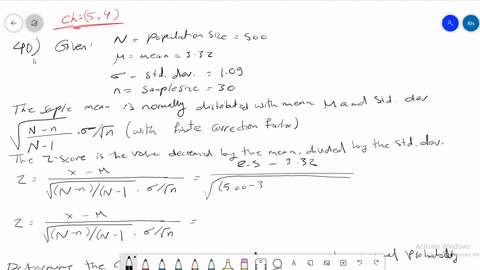 Ch=(5.4)
40) Given: N = population size = 500
μ = mean = 3.32
σ - std. dev. = 1.09
n = sample size = 30
The saple mean is normally distributed with mean μ and Std. dev
√(N-n)/(N-1) . σ/√n (with finite correction factor)
The Z-score is the value decreased by the mean, divided by the std. dev.
Z = (x - μ)/(√(N-n)/(N-1) . σ/√n) = (2.5 - 3.32)/√(500-3
Z = (x - μ)/(√(N-n)/(N-1) . σ/√n) =
Determine the
probability
Activate Windows
RN